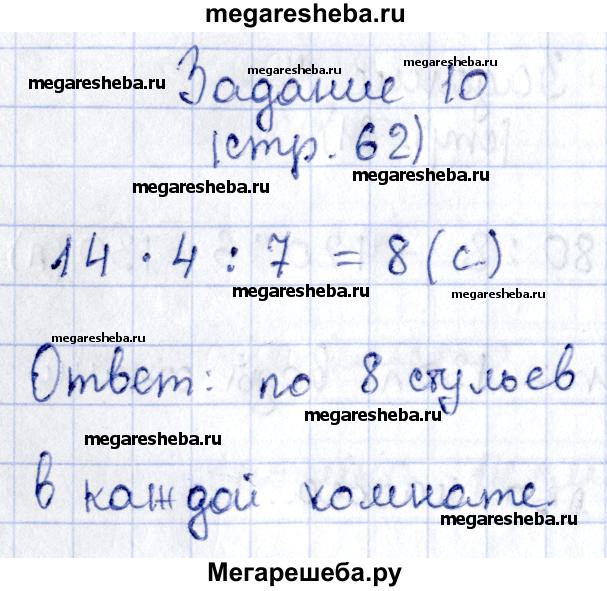 megaresheba.ru
megaresheba.ru megaresheba.ru megaresheba.ru
Задание 10
(стр. 62)
megaresheba.ru megaresheba.ru
14 · 4 : 7 = 8 (с.)
megaresheba.ru megaresheba.ru
megaresheba.ru
Ответ: по 8 стульев
megaresheba.ru
megaresheba.ru
в каждой комнате.
megaresheba.ru
Мегарешеба.ру